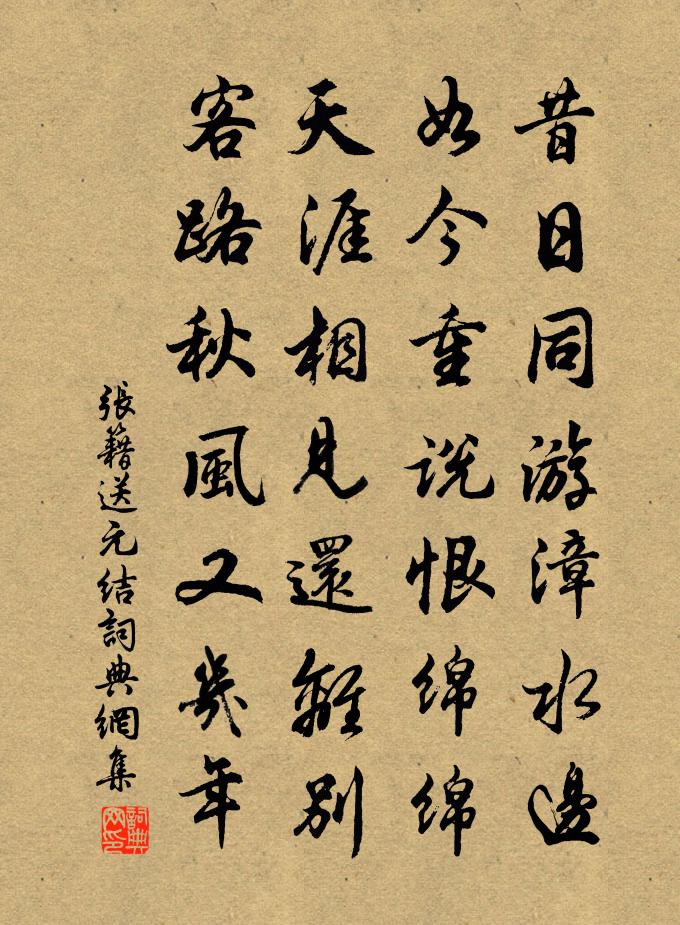 昔日同游漳水邊
如今重说恨綿綿
天涯相見還離别
客路秋風又幾年
張籍送元结詞典網集
詞典网印